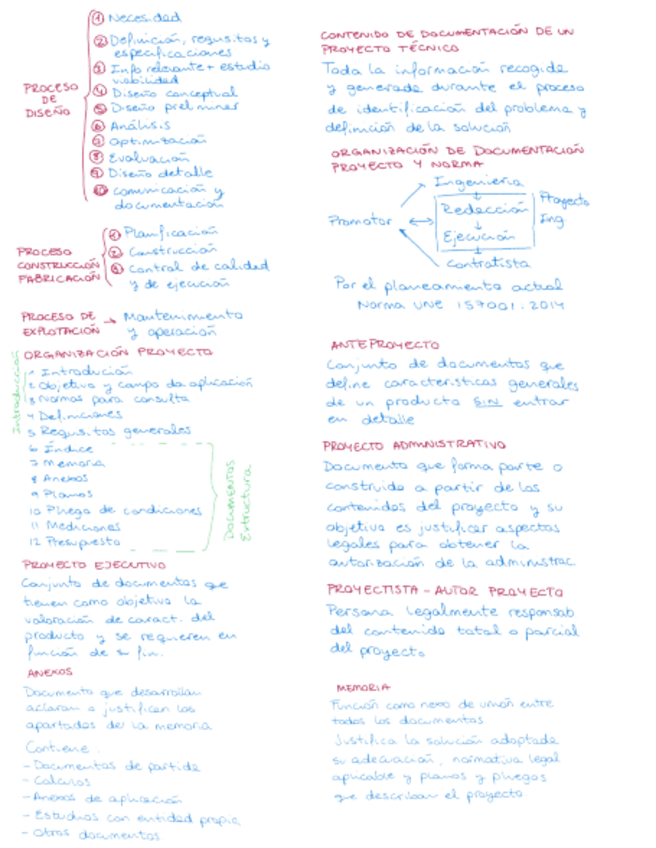 PROCESO
DE
DISEÑO
① Necesidad
② Definición, requisitos y
especificaciones
③ Info relevante + estudio
viabilidad
④ Diseño conceptual
⑤ Diseño preliminar
⑥ Análisis
⑦ Optimización
⑧ Evaluación
⑨ Diseño detalle
⑩ comunicación y
documentación
PROCESO
CONSTRUCCIÓN
FABRICACIÓN
① Planificación
② Construcción
③ Control de calidad
y de ejecución
PROCESO DE
EXPLOTACIÓN → Mantenimiento
y operación
ORGANIZACIÓN PROYECTO
Introducción
1 Introdución
2 Objetivo y campo de aplicación
3 Normas para consulta
4 Definiciones
5 Requisitos generales
6 Índice
7 Memoria
8 Anexos
9 Planos
10 Pliego de condiciones
11 Mediciones
12 Presupuesto
DOCUMENTOS
Estructura
PROYECTO EJECUTIVO
Conjunto de documentos que
tienen como objetivo la
valoración de caract. del
producto y se requieren en
función de su fin.
ANEXOS
Documento que desarrollan
aclaran o justifican los
apartados de la memoria
Contiene:
- Documentos de partida
- Calculos
- Anexos de aplicación
- Estudios con entidad propia
- Otros documentos
CONTENIDO DE DOCUMENTACIÓN DE UN
PROYECTO TÉCNICO
Toda la información recogida
y generada durante el proceso
de identificación del problema y
definición de la solución
ORGANIZACIÓN DE DOCUMENTACIÓN
PROYECTO Y NORMA
Ingeniería
Promotor
Redacción
Ejecución
Proyecto
Ing
Contratista
Por el planeamiento actual
Norma UNE 157001:2014
ANTEPROYECTO
Conjunto de documentos que
define características generales
de un producto SIN entrar
en detalle
PROYECTO ADMINISTRATIVO
Documento que forma parte o
construido a partir de los
contenidos del proyecto y su
objetivo es justificar aspectos
legales para obtener la
autorización de la administrac
PROYECTISTA - AUTOR PROYECTO
Persona legalmente responsab
del contenido total o parcial
del proyecto
MEMORIA
Función como nexo de unión entre
todos los documentos
Justifica la solución adoptada
su adecuación, normativa legal
aplicable y planos y pliegos
que describan el proyecto